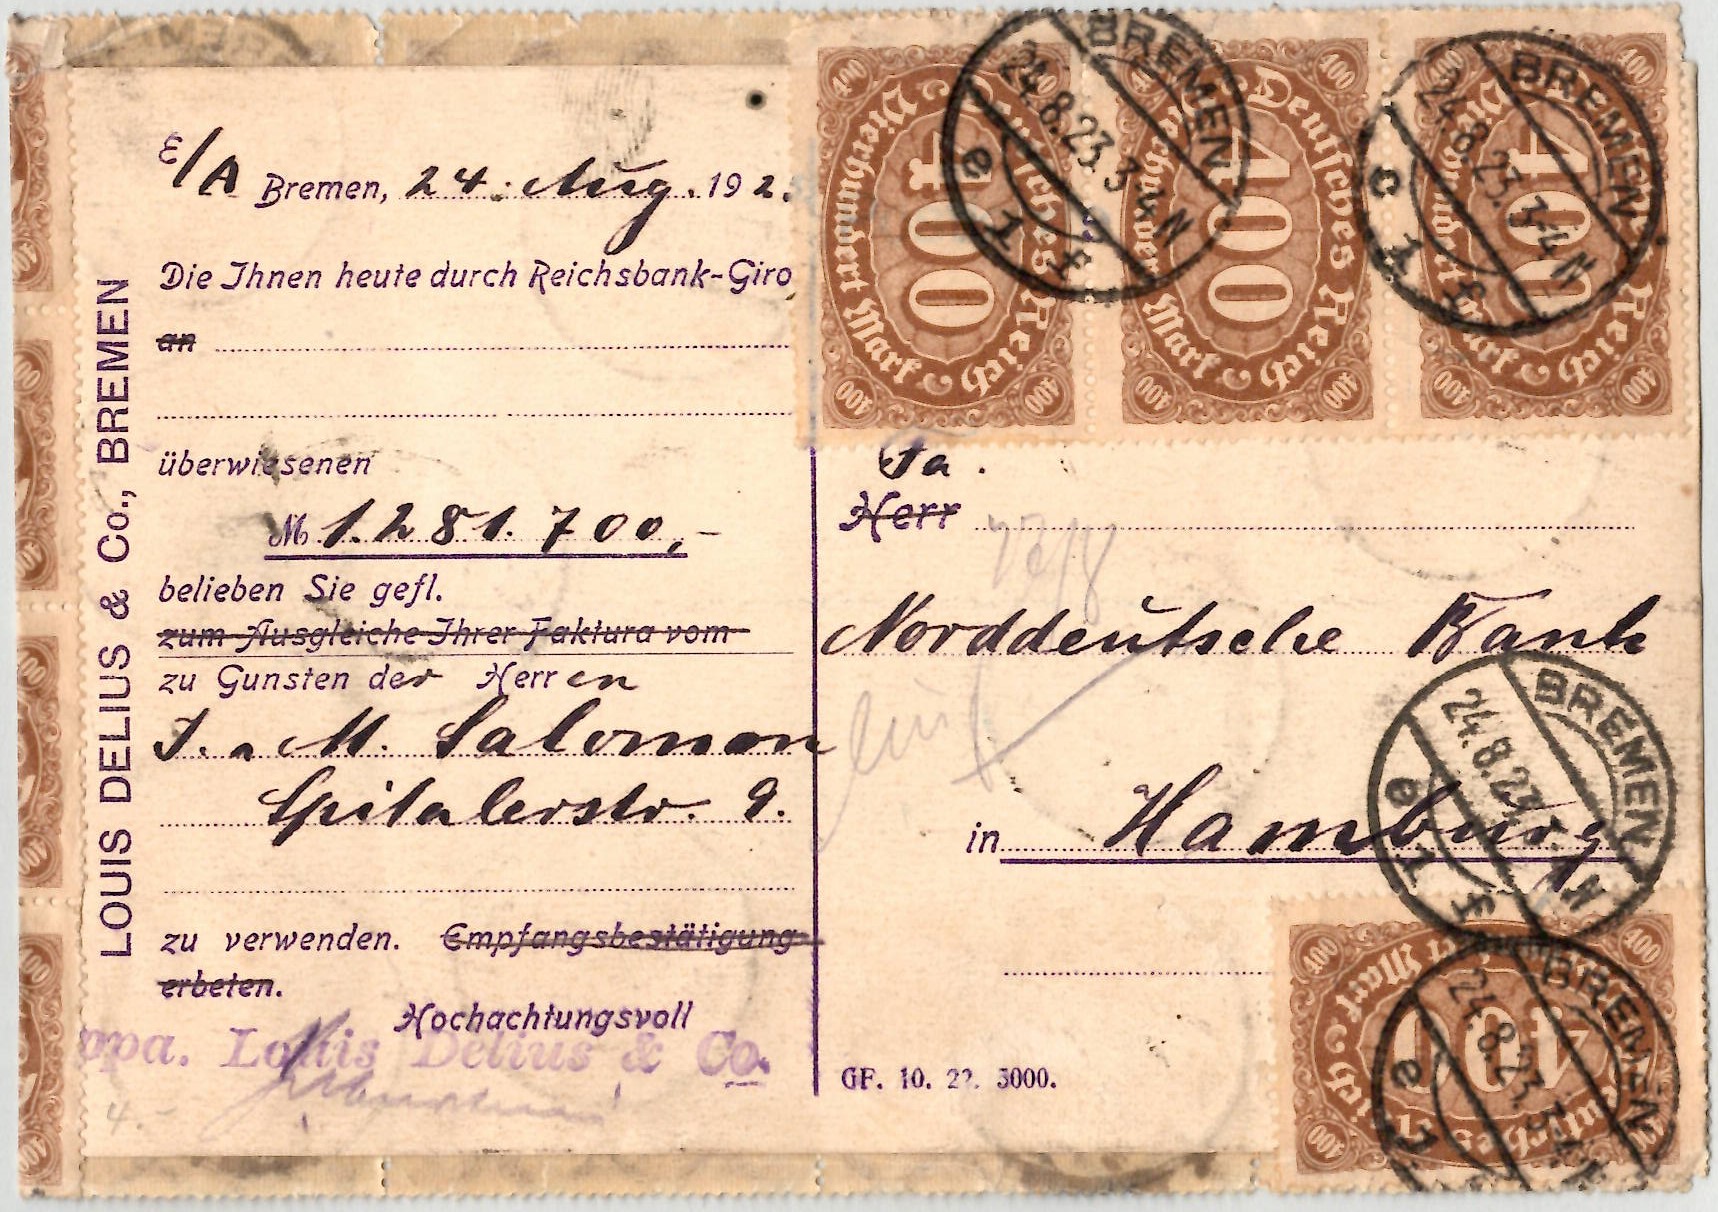 LOUIS DELIUS & Co., BREMEN
E/A Bremen, 24. Aug. 192
Die Ihnen heute durch Reichsbank-Giro
an
überwiesenen
M 1.281.700,-
belieben Sie gefl.
zum Ausgleiche Ihrer Faktura vom
zu Gunsten der Herren
J. M. Salomon
Spitalerstr. 9.
zu verwenden. Empfangsbestätigung
erbeten.
Hochachtungsvoll
ppa. Louis Delius & Co.
4.-
400 400 400 400
Deutsches Reich
Vierhundert Mark
400
400 400 400
Deutsches Reich
Vierhundert Mark
400
400 400 400 400
Deutsches Reich
Vierhundert Mark
400
BREMEN
24.8.23. 3-4 N
e 1 f
BREMEN
24.8.23. 3-4 N
c 1 f
Fa.
Herr
Norddeutsche Bank
in Hamburg
BREMEN
24.8.23. N
e 1 f
BREMEN
24.8.23. 3-4 N
e 1
400 400 400
400
Mark
Deutsches Reich
GF. 10. 22. 5000.